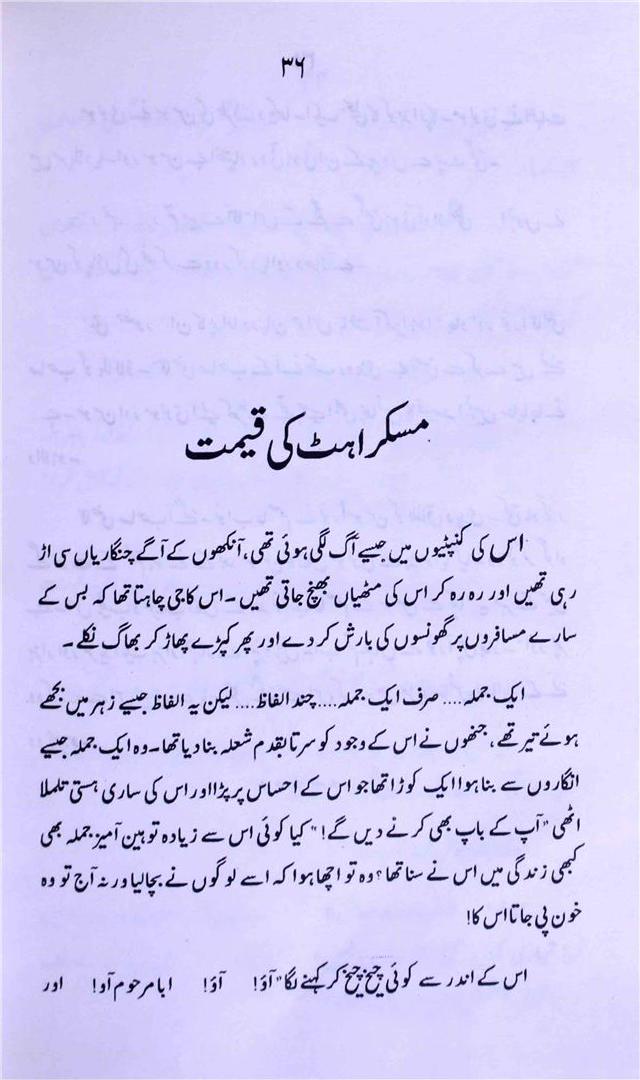 ۳۶
مسکراہٹ کی قیمت
اس کی کنپٹیوں میں جیسے آگ لگی ہوئی تھی، آنکھوں کے آگے چنگاریاں سی اڑ
رہی تھیں اور رہ رہ کر اس کی مٹھیاں بھنچ جاتی تھیں۔ اس کا جی چاہتا تھا کہ بس کے
سارے مسافروں پر گھونسوں کی بارش کر دے اور پھر کپڑے پھاڑ کر بھاگ نکلے۔
ایک جملہ.... صرف ایک جملہ.... چند الفاظ.... لیکن یہ الفاظ جیسے زہر میں بجھے
ہوئے تیر تھے، جنھوں نے اس کے وجود کو سر تا بقدم شعلہ بنا دیا تھا۔ وہ ایک جملہ جیسے
انگاروں سے بنا ہوا ایک کوڑا تھا جو اس کے احساس پر پڑا اور اس کی ساری ہستی تلملا
اٹھی "آپ کے باپ بھی کرنے دیں گے!" کیا کوئی اس سے زیادہ توہین آمیز جملہ بھی
کبھی زندگی میں اس نے سنا تھا؟ وہ تو اچھا ہوا کہ اسے لوگوں نے بچا لیا ورنہ آج تو وہ
خون پی جاتا اس کا!
اس کے اندر سے کوئی چیخ چیخ کر کہنے لگا "آؤ! آؤ! ابا مرحوم آو! اور